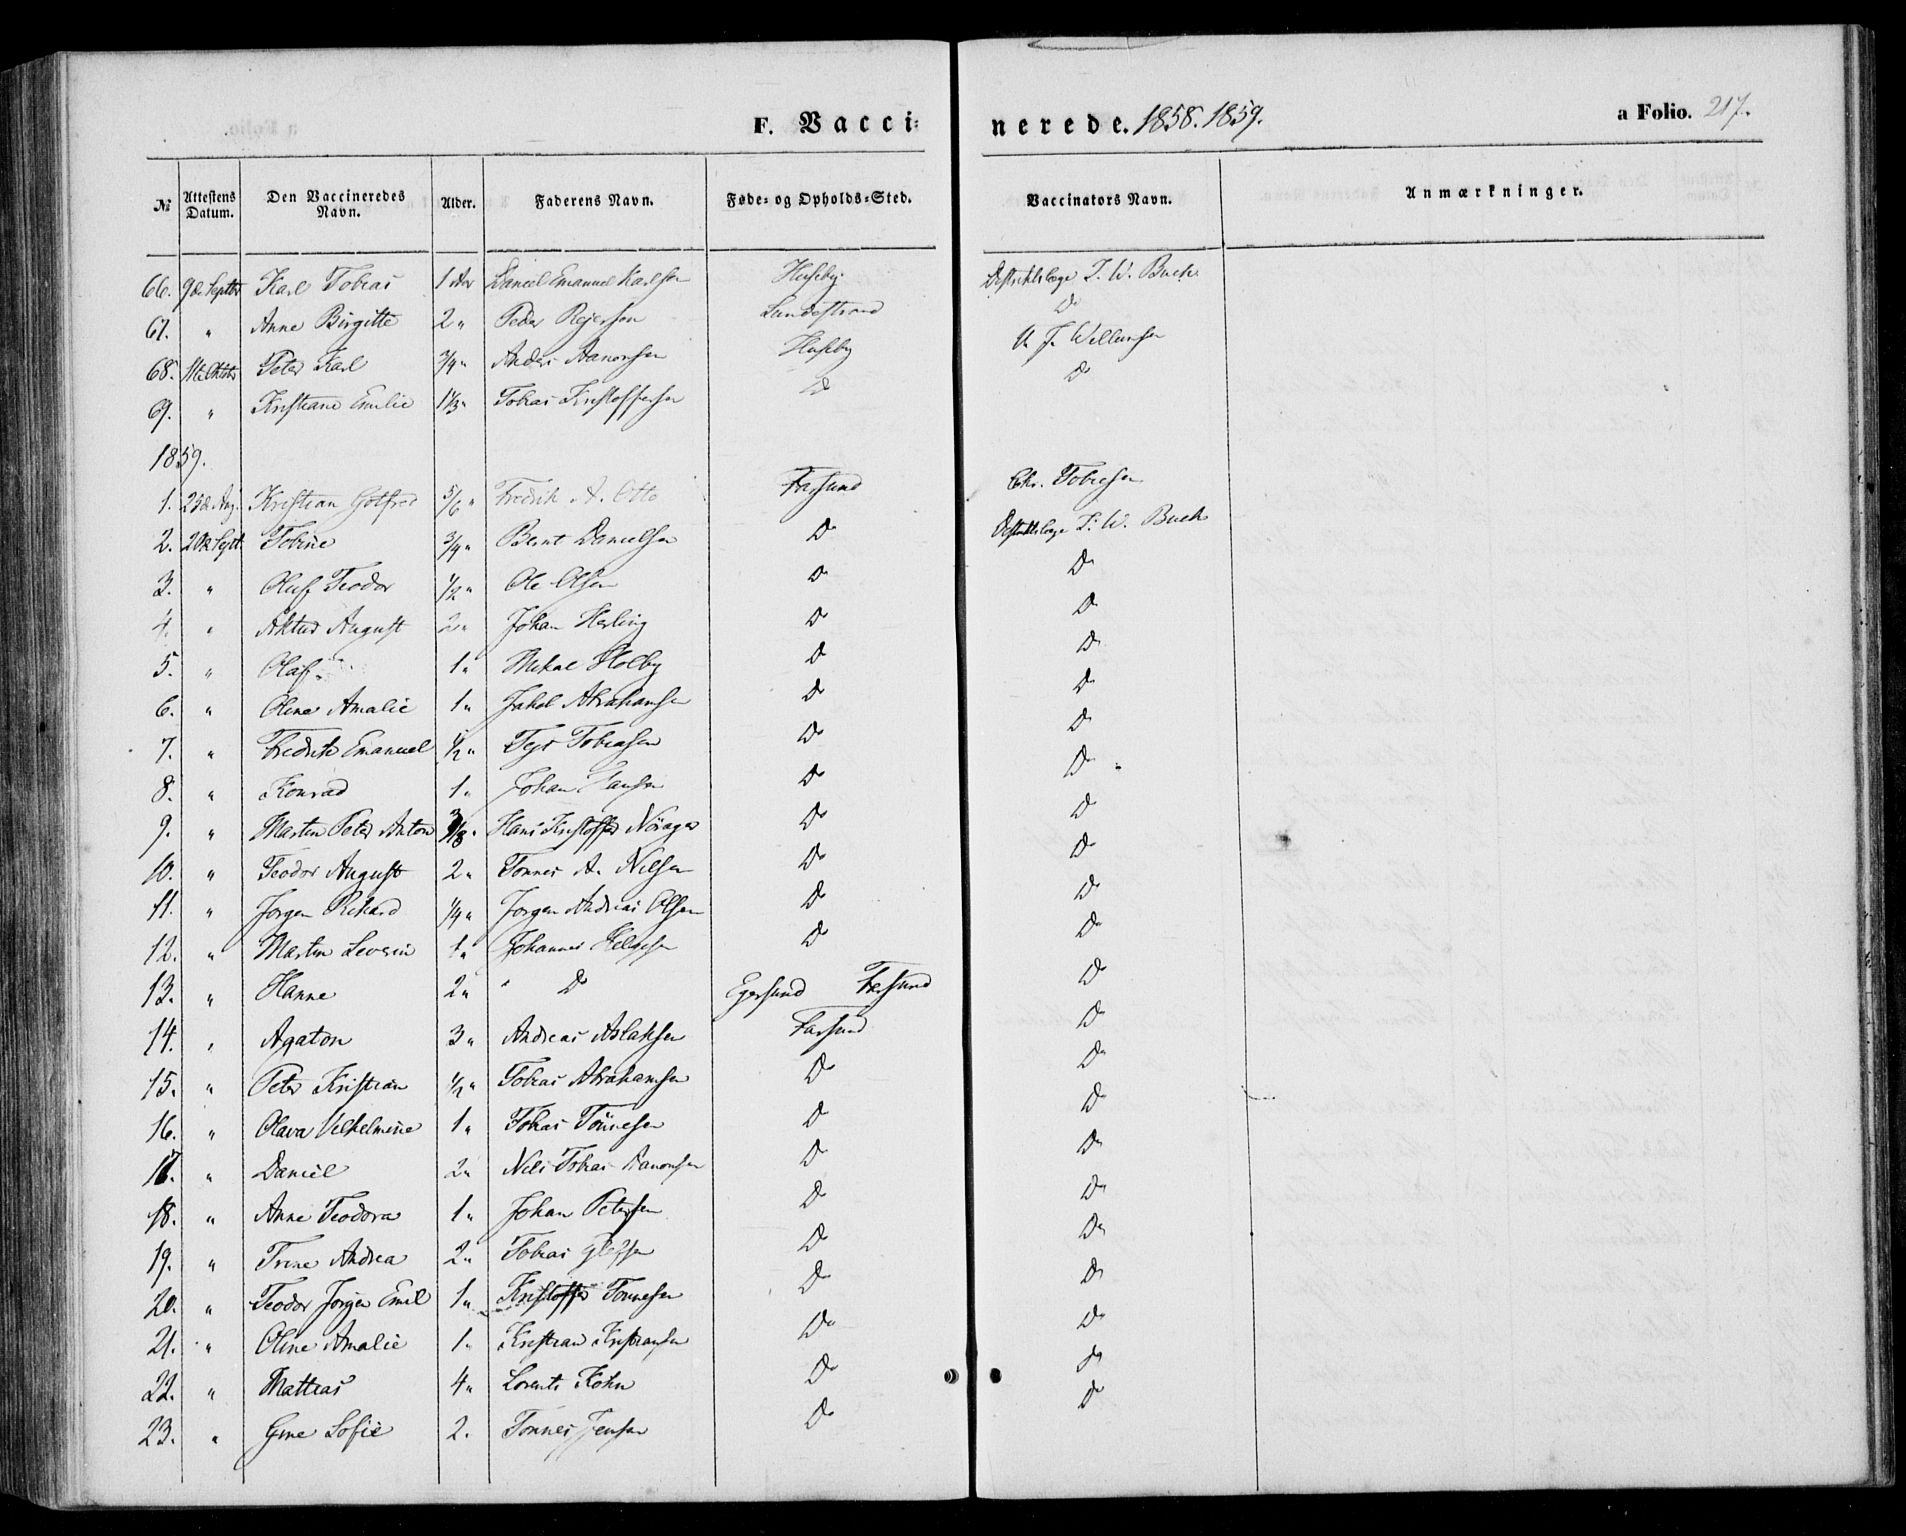 F. Vacci= nerede. 1858. 1859. a Folio. 217.
№ Attestens Datum. Den Vaccineredes Navn. Alder. Faderens Navn. Føde= og Opholds=Sted. Vaccinators Navn. Anmærkninger.
66. 9de Septbr Karl Tobias 1 Aar Daniel Emanuel Karlsen Huseby Distriktslæge T. W. Buch
67. " Anne Birgitte 2 " Peder Reiersen Lundestrand Do
68. 11te Oktbr Peter Karl 3/4 " Anders Aanonsen Huseby A. J. Willumsen
69. " Kristiane Emilie 1 1/3 " Tobias Kristoffersen Do Do
1859.
1. 25de Aug. Kristian Gotfred 5/6 " Fredrik A. Otto Farsund Chr. Tobiesen
2. 20de Septb Tobine 3/4 " Bernt Danielsen Do Distriktslæge T. W. Buch
3. " Oluf Teodor 1/2 " Ole Olsen Do Do
4. " August 2 " Johan Herling Do Do
5. " Olaf 1 " Mikal Holby Do Do
6. " Oline Amalie 1 " Jakob Abrahamsen Do Do
7. " Fredrik Emanuel 1/2 " Tejs Tobiasen Do Do
8. " Konrad 1 " Johan Hansen Do Do
9. " Martin Peter Anton 3/8 " Hans Kristoffer Nöragen Do Do
10. " Teodor August 2 " Tønnes A. Nilsen Do Do
11. " Jørgen Rikard 1/4 " Jørgen Andreas Olsen Do Do
12. " Martin Severin 1 " Johannes Helgesen Do Do
13. " Hanne 2 " " Do Egersund Farsund Do
14. " Agaton 3 " Andreas Aslaksen Farsund Do
15. " Peter Kristian 1/2 " Tobias Abrahamsen Do Do
16. " Olava Vilhelmine 1 " Tobias Tönnesen Do Do
17. " Daniel 2 " Nils Tobias Aanonsen Do Do
18. " Anne Teodora 1 " Johan Petersen Do Do
19. " Trine Andrea 2 " Tobias Do Do
20. " Teodor Jørgen Emil 1 " Kristoffer Tønnesen Do Do
21. " Oline Amalie 1 " Kristian Kristiansen Do Do
22. " Mattias 4 " Lorents Kohn Do Do
23. " Gine Sofie 2. Tønnes Jensen Do Do